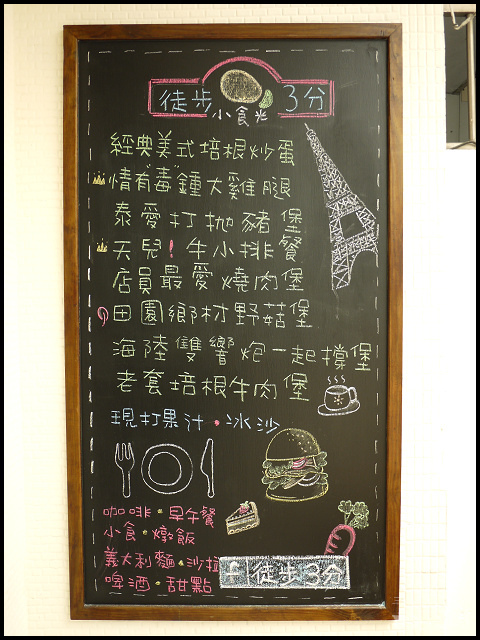 徒步 3分
小食光
經典美式培根炒蛋
情有"毒"鍾大雞腿
泰愛打拋豬堡
天兒!牛小排餐
店員最愛燒肉堡
田園鄉村野菇堡
海陸雙響炮一起撐堡
老套培根牛肉堡
現打果汁•冰沙
咖啡•早午餐
小食•燉飯
義大利麵•沙拉
啤酒•甜點
徒步3分